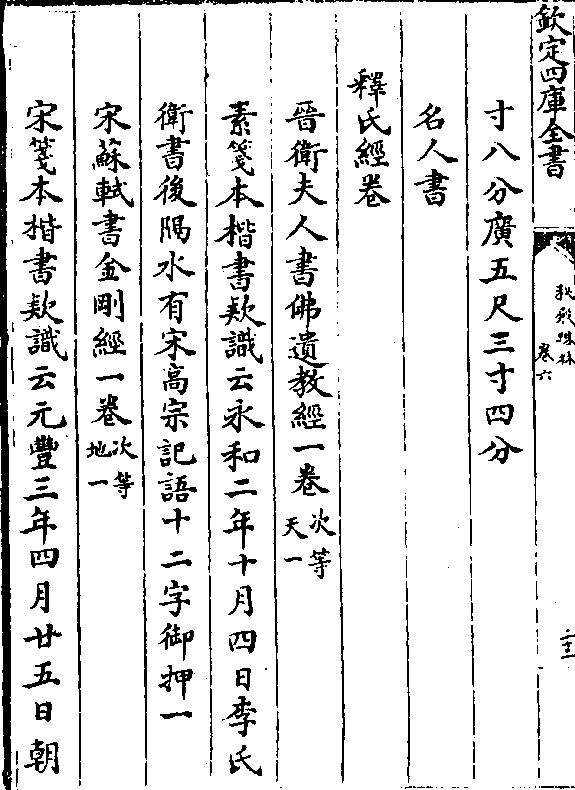 欽定四庫全書
秘殿珠林
卷六
二十三
寸八分廣五尺三寸四分
名人書
釋氏經卷
晉衛夫人書佛遺教經一卷次等天一
素箋本楷書欵識云永和二年十月四日李氏
衛書後隔水有宋髙宗記語十二字御押一
宋蘇軾書金剛經一卷次等地一
宋箋本楷書欵識云元豐三年四月廿五日朝